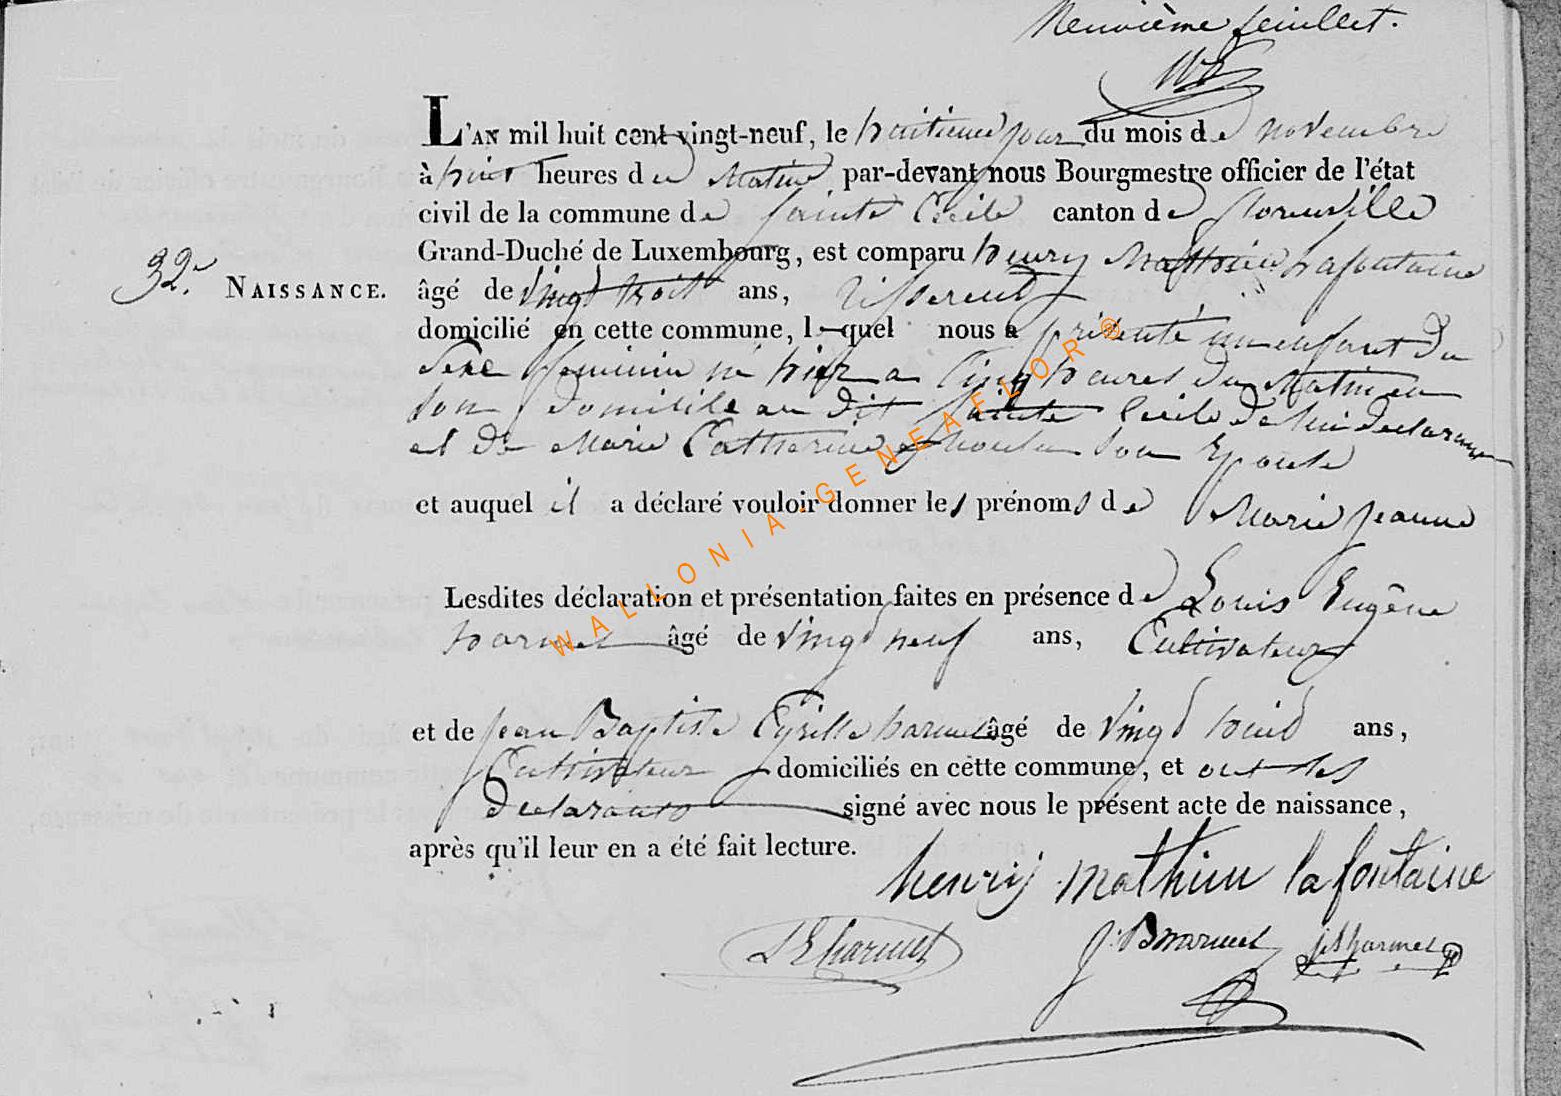 Neuvième feuillet.
L'AN mil huit cent vingt-neuf, le huitieme jour du mois de novembre
à huit heures du Matin par-devant nous Bourgmestre officier de l'état
civil de la commune de Sainte Cécile canton de florenville
Grand-Duché de Luxembourg, est comparu henry Mathieu Lafontaine
32.e NAISSANCE. âgé de vingt trois ans, Tisserend
domicilié en cette commune, lequel nous a présenté un enfant du
sexe feminin né hier a Cinq heures du Matin en
son domicile au dit Sainte Cecile de lui declarant
et de Marie Catherine son Epouse
et auquel il a déclaré vouloir donner les prénoms de Marie jeanne
Lesdites déclaration et présentation faites en présence de Louis Eugêne
harmel âgé de vingt neuf ans, Cultivateur
et de jean Baptiste Cyrille harmel âgé de vingt huit ans,
Cultivateur domiciliés en cette commune, et ont les
declarants signé avec nous le présent acte de naissance,
après qu'il leur en a été fait lecture.
henry mathieu lafontaine
L E harmel J: B harmel harmel
WALLONIA-GENEAFLOR ®